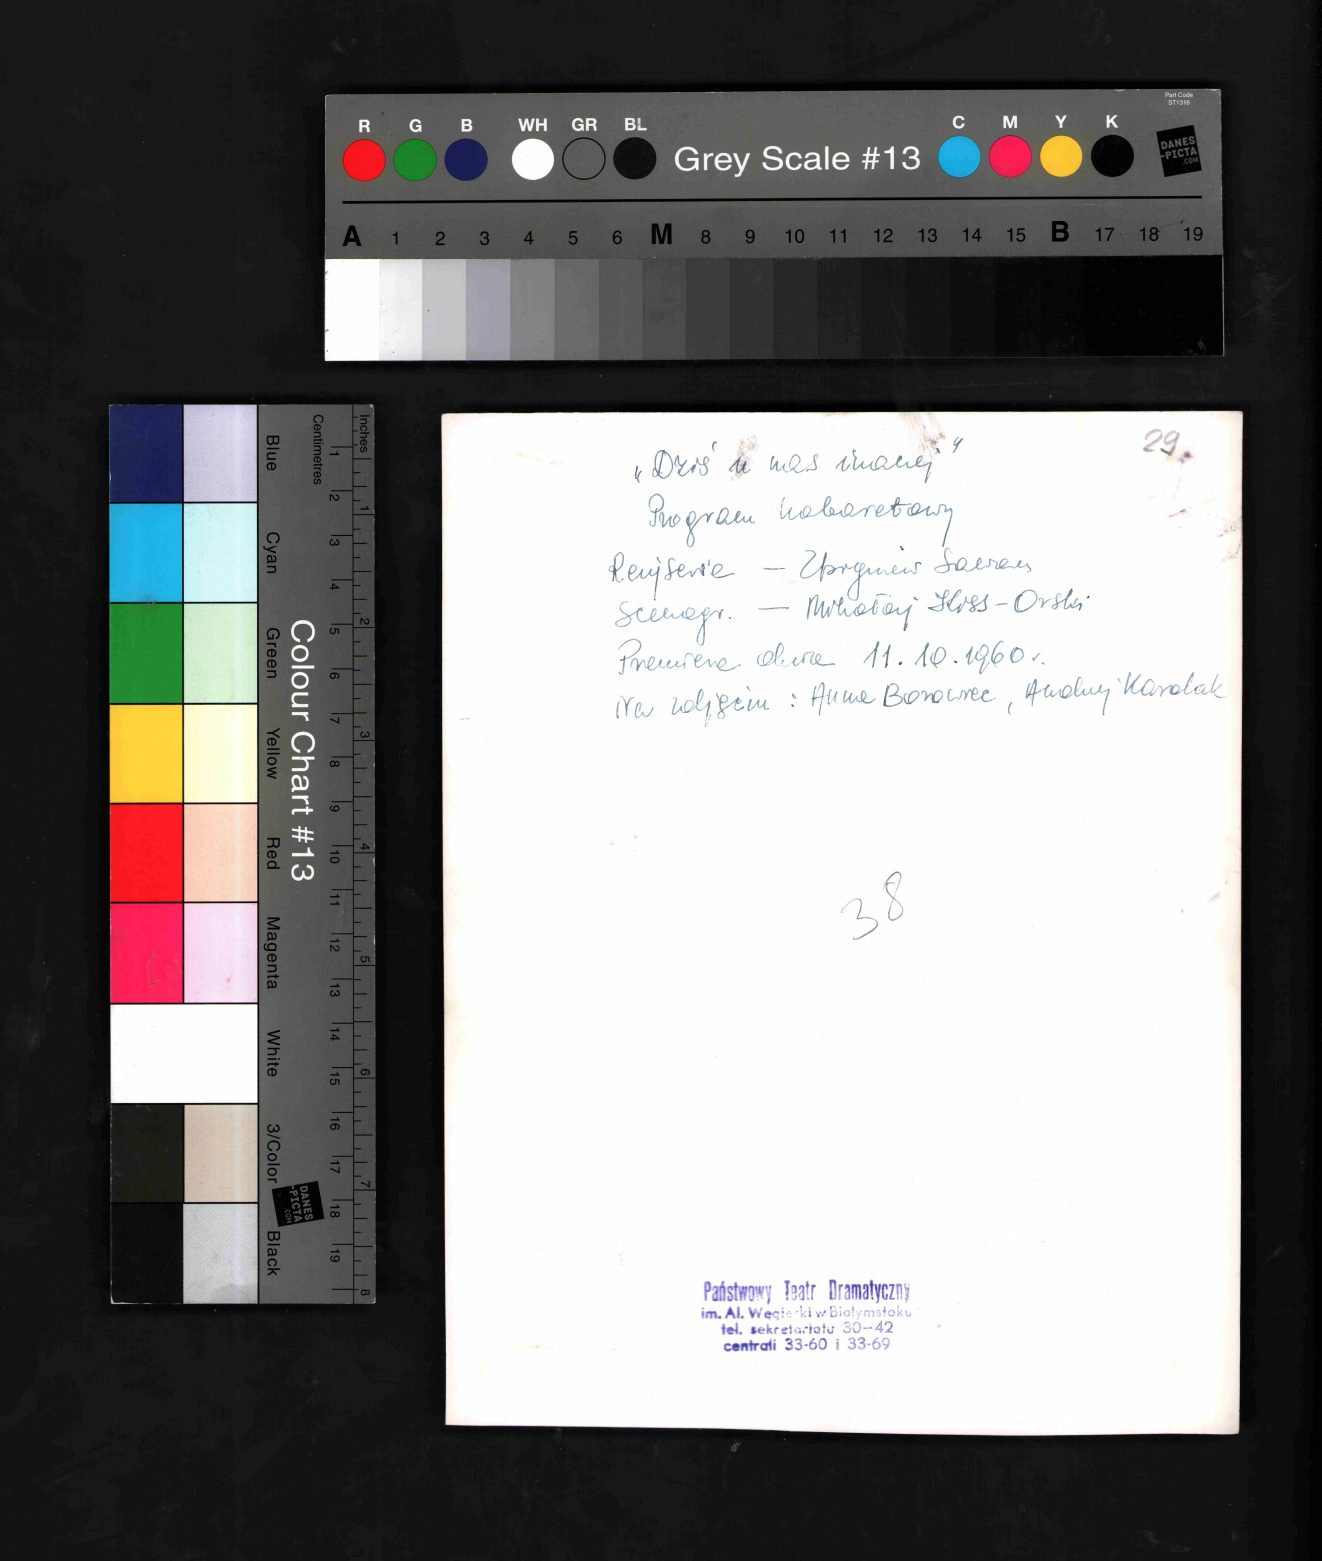 Part Code
ST1316
R G B WH GR BL Grey Scale #13 C M Y K
DANES
-PICTA
.COM
A 1 2 3 4 5 6 M 8 9 10 11 12 13 14 15 B 17 18 19
Colour Chart #13
Blue
Cyan
Green
Yellow
Red
Magenta
White
3/Color
Black
Centimetres
1 2 3 4 5 6 7 8 9 10 11 12 13 14 15 16 17 18 19
Inches
1 2 3 4 5 6 7 8
DANES
-PICTA
.COM
29.
"Dziś u nas inaczej"
Program kabaretowy
Reżyseria — Zbigniew Sawan
Scenogr. — Mikołaj Kiss-Orski
Premiera dnia 11.10.1960 r.
Na zdjęciu : Anna Borowiec, Andrzej Karolak
38
Państwowy Teatr Dramatyczny
im. Al. Węgierki w Białymstoku
tel. sekretariatu 30—42
centrali 33-60 i 33-69